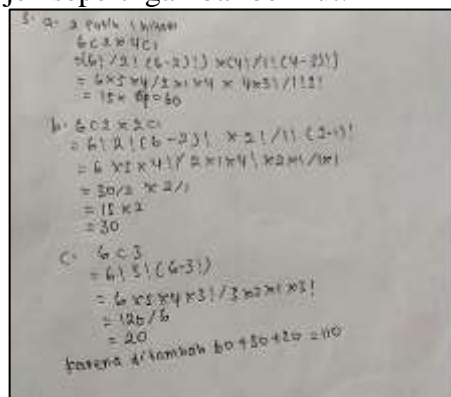 3. a. 2 putih 1 hitam
6C2 × 4C1
=(6!/2!(6-2)!) × (4!/1!(4-3)!)
= 6×5×4/2×1×4 × 4×3!/1!3!
= 15 × 4 = 60
b. 6C2 × 2C1
= 6! 2! (6-2)! × 2!/1! (2-1)!
= 6 × 5 × 4!/2×1×4! × 2×1/1×1
= 30/2 × 2/1
= 15 × 2
= 30
C. 6C3
= 6! 3! (6-3!)
= 6×5×4×3!/3×2×1×3!
= 120/6
= 20
karena ditambah 60+30+20 = 110